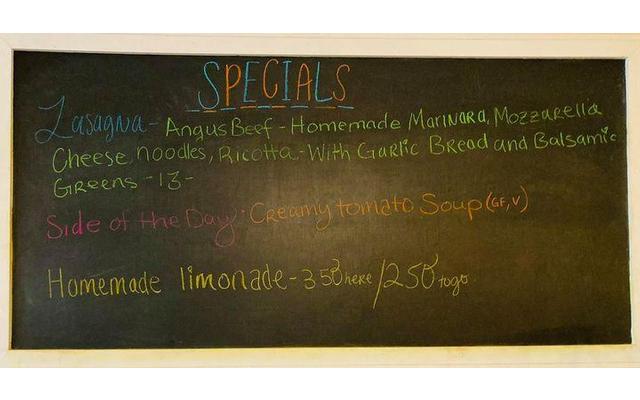 SPECIALS
Lasagna - Angus Beef - Homemade Marinara, Mozzarella
Cheese, noodles, Ricotta - With Garlic Bread and Balsamic
Greens - 13 -
Side of the Day: Creamy tomato Soup (GF, V)
Homemade limonade - 350 here / 250 togo